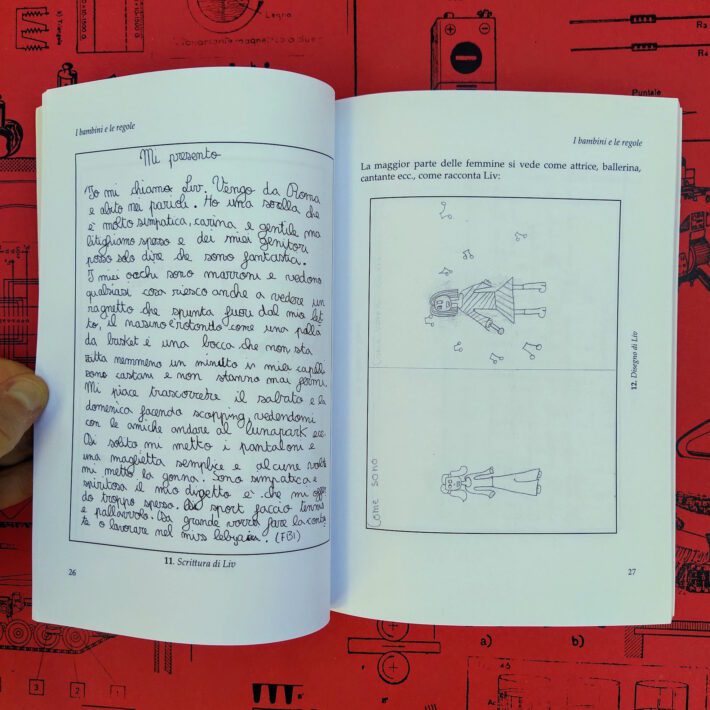 Legno
Variante magnetico a due
Puntale
I bambini e le regole
Mi presento
Io mi chiamo Liv. Vengo da Roma
e abito nei parioli. Ho una sorella che
è molto simpatica, carina e gentile ma
litighiamo spesso e dei miei genitori
posso solo dire che sono fantastici.
I miei occhi sono marroni e vedono
qualsiasi cosa riesco anche a vedere un
ragnetto che spunta fuori dal mio let
to, il nasino è rotondo come una palla
da basket è una bocca che non sta
zitta nemmeno un minuto i miei capelli
sono castani e non stanno mai fermi.
Mi piace trascorrere il sabato e la
domenica facendo scopping, vedendomi
con le amiche andare al lunapark ecc.
Di solito mi metto i pantaloni e
una maglietta semplice e alcune volte
mi metto la gonna. Sono simpatica e
spiritosa il mio difetto è che mi offen
do troppo spesso. Di sport faccio tennis
e pallavvolo. Da grande vorrei fare la canta
te o lavorare nel (FBI)
11. Scrittura di Liv
26
I bambini e le regole
La maggior parte delle femmine si vede come attrice, ballerina,
cantante ecc., come racconta Liv:
Come sono
12. Disegno di Liv
27
a)
b)
3
2
1